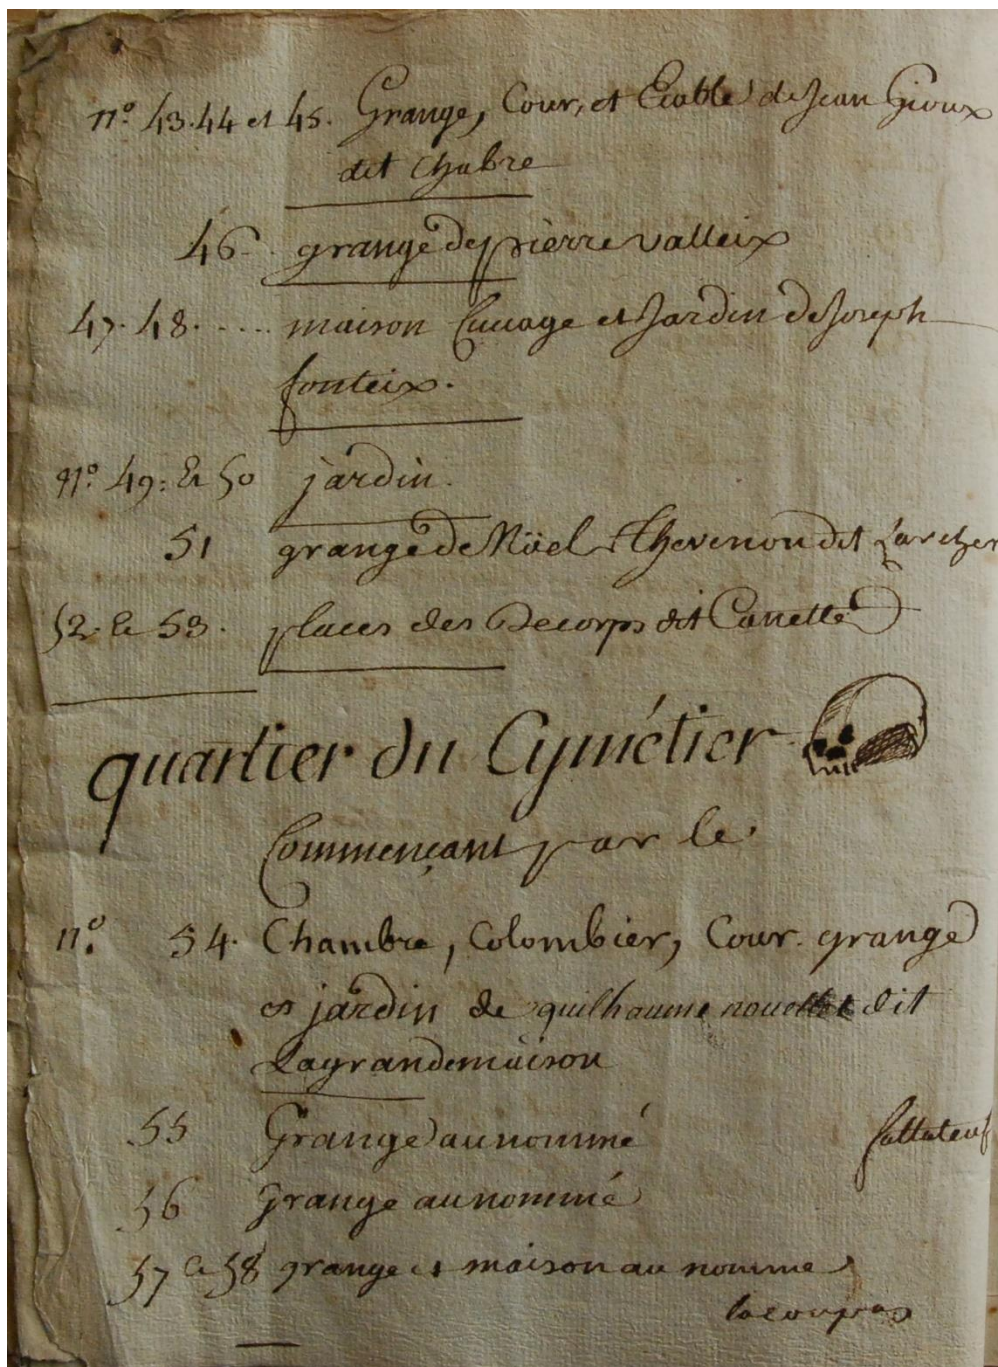 n.º 43.44 et 45. Grange, Cour, et Ecable de Jean Gioux
dit Chabre
46. grange de pierre valleix
47. 48. .... maison Cuuage et Jardin de Joseph
fonteix.
n.º 49. Et 50 jardin.
51 grange de Nöel Thevenon dit Larcher
52. Et 53. places des Decorps dit Canette
quartier du Cymétier
Commençant par le
n.º 54. Chambre, Colombier, Cour. grange
et jardin de guilhaume dit
Lagrandemaison
55 Grange au nommé
56 grange au nommé
57 et 58 grange et maison au nomme